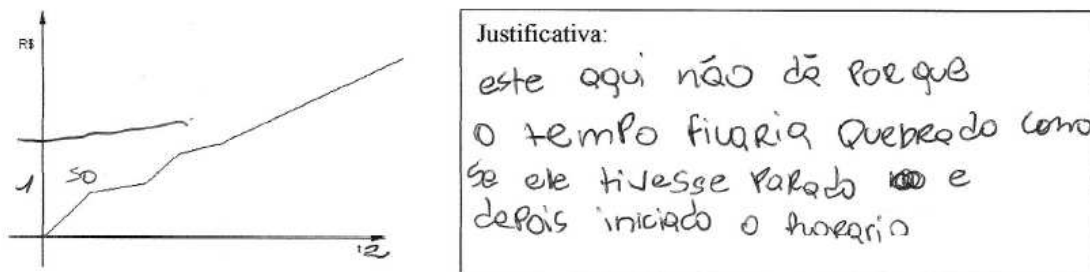 R$
1 50
12
Justificativa:
este aqui não dá porque
o tempo ficaria Quebrado como
se ele tivesse Parado e
depois iniciado o horario